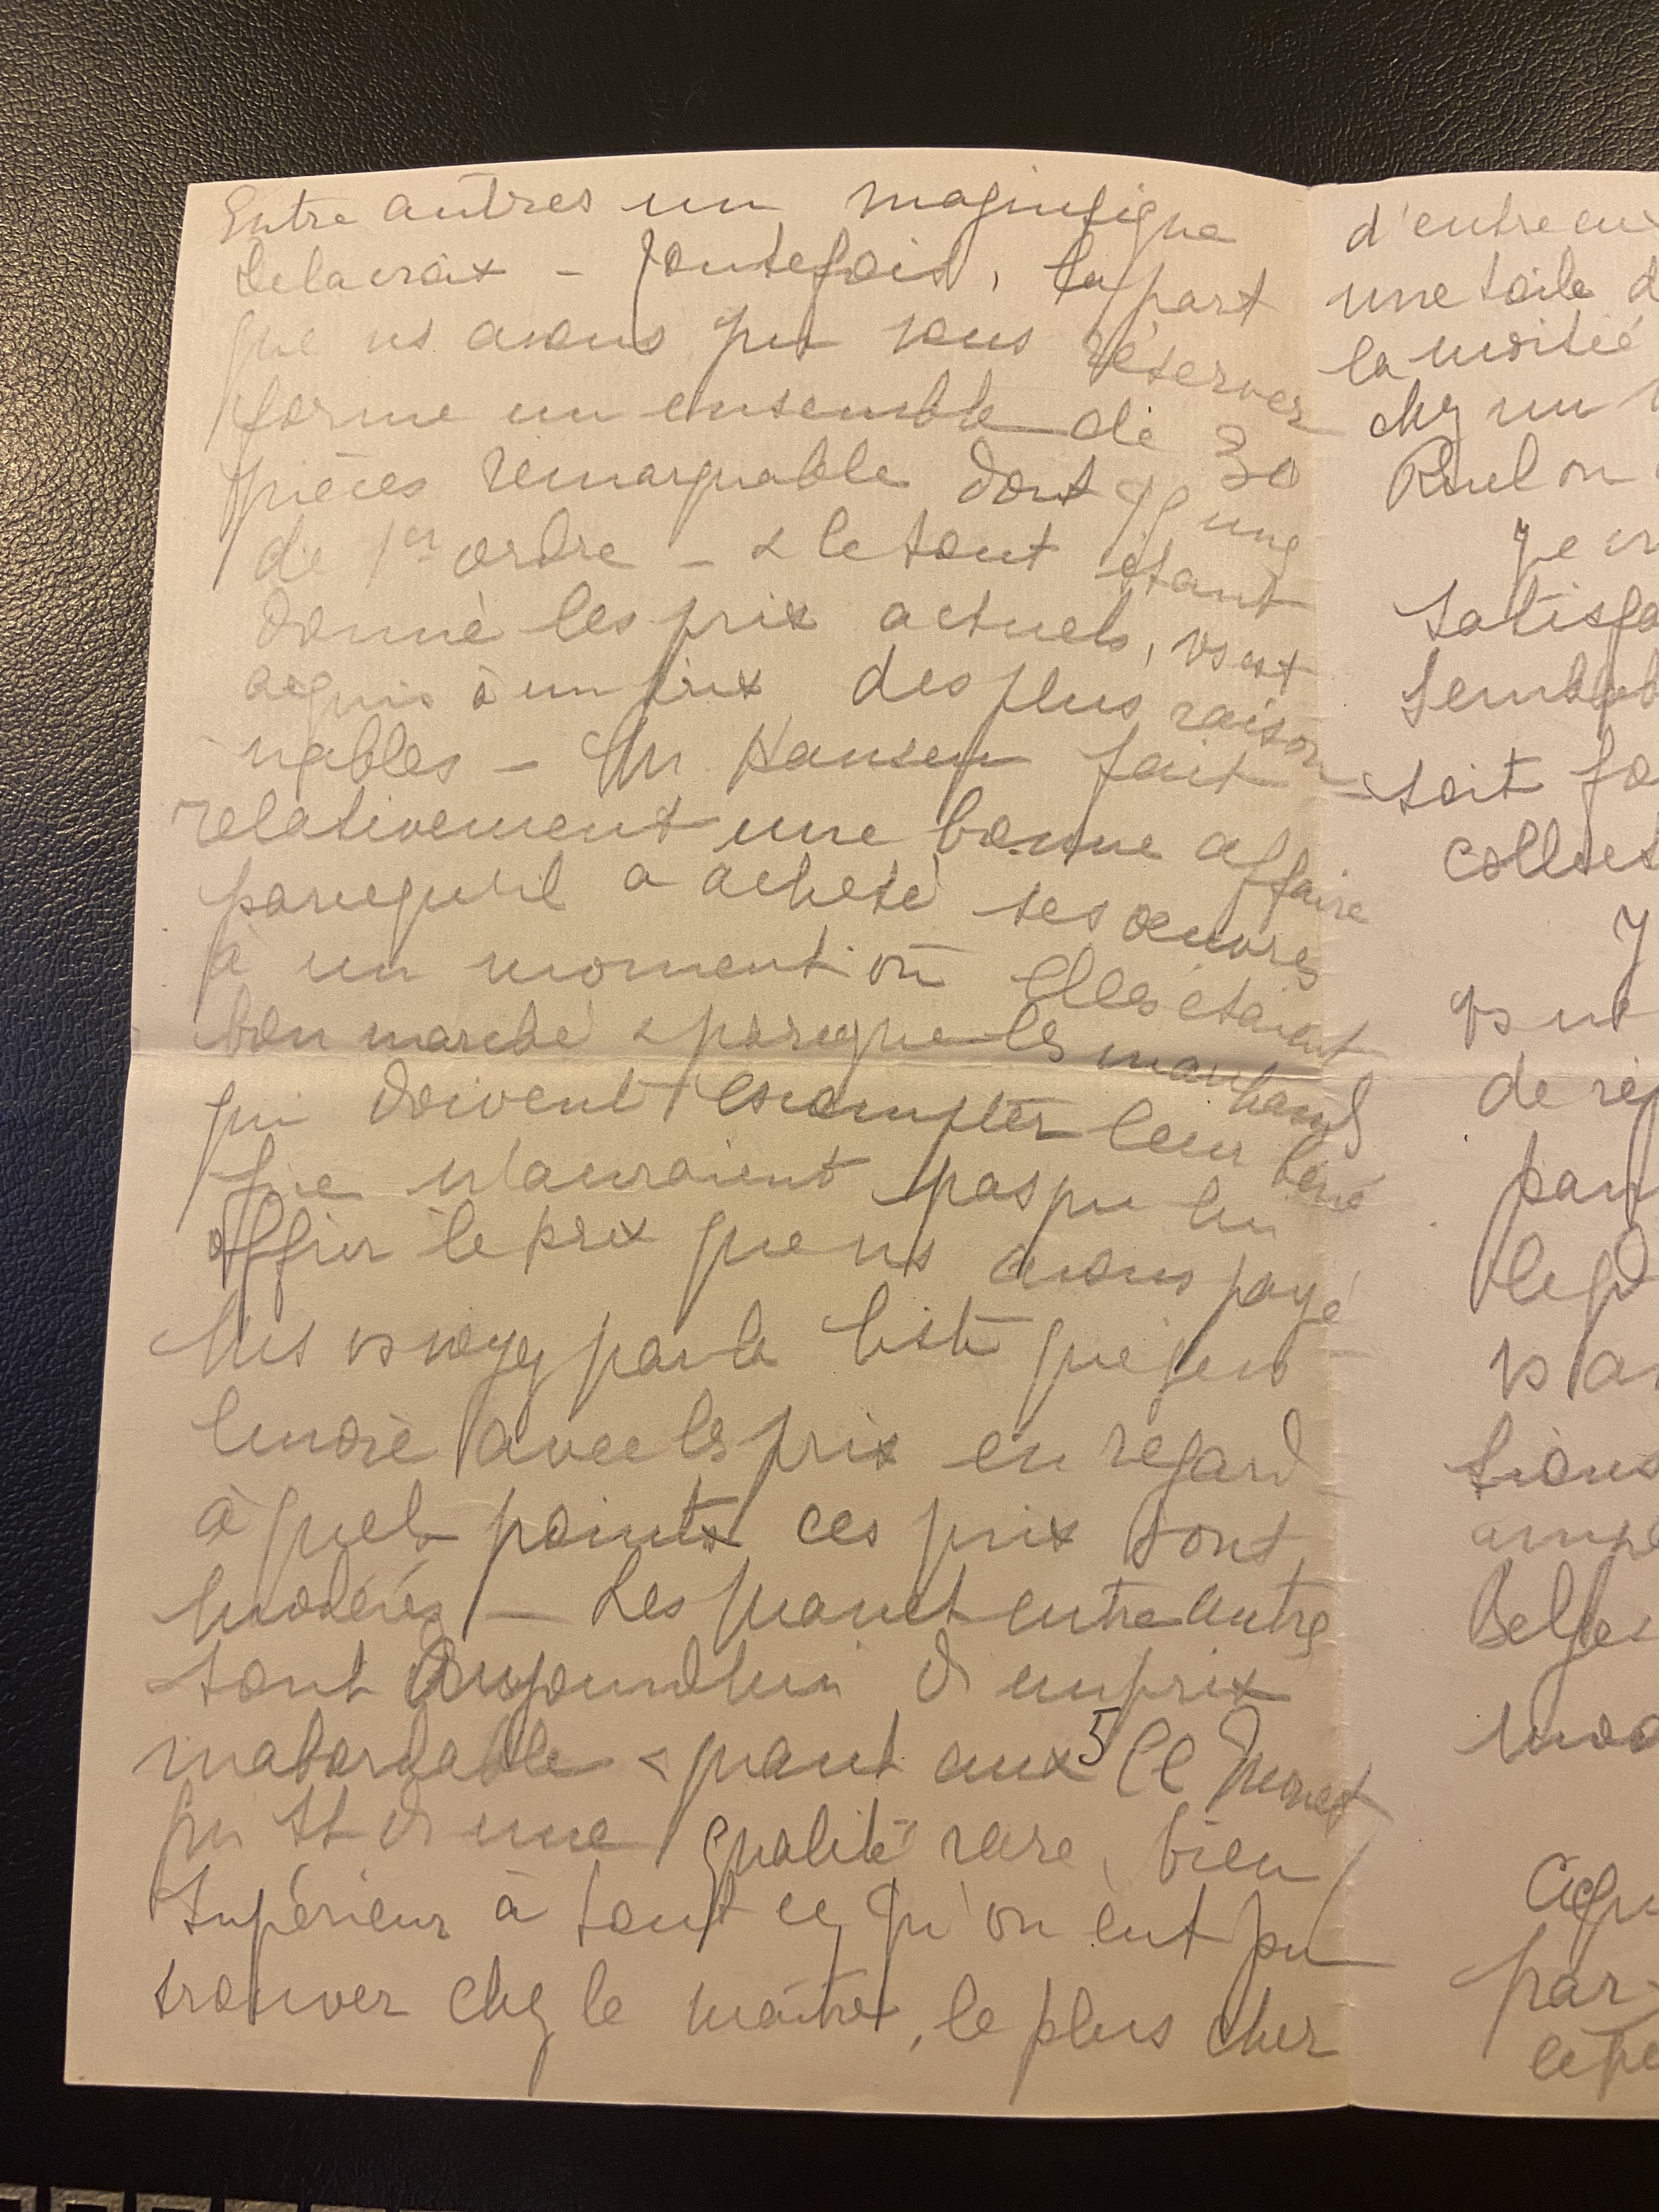 Entre autres un magnifique
Delacroix - Toutefois, la part
que ns avons pu vous réserver
forme un ensemble de 30
pièces remarquable dont qq unes
de 1er ordre - & le tout étant
donné les prix actuels, vs est
acquis à un prix des plus raison
nables - Mr Hansen fait
relativement une bonne affaire
parcequ'il a acheté ses œuvres
à un moment où elles étaient
bon marché & parceque les marchands
qui doivent escompter leur béné
fice n'auraient pas pu lui
offrir le prix que ns avons payé
vs voyez par la liste que je vs
avec les prix en regard
à quel points ces prix sont
modérés - Les Manet entre autres
sont aujourdhui d'un prix
inabordable & quant aux 5 Cl Monet
qui st d'une qualité rare, bien
supérieur à tout ce qu'on eut pu
trouver chez le maître, le plus cher
d'entre eux
une toile d
la moitié
chez un
Ruel on
je
satisfa
semblab
soit fa
collect
J
vs
de rép
par
le
vs
tions
Belges
mod
acqu
par